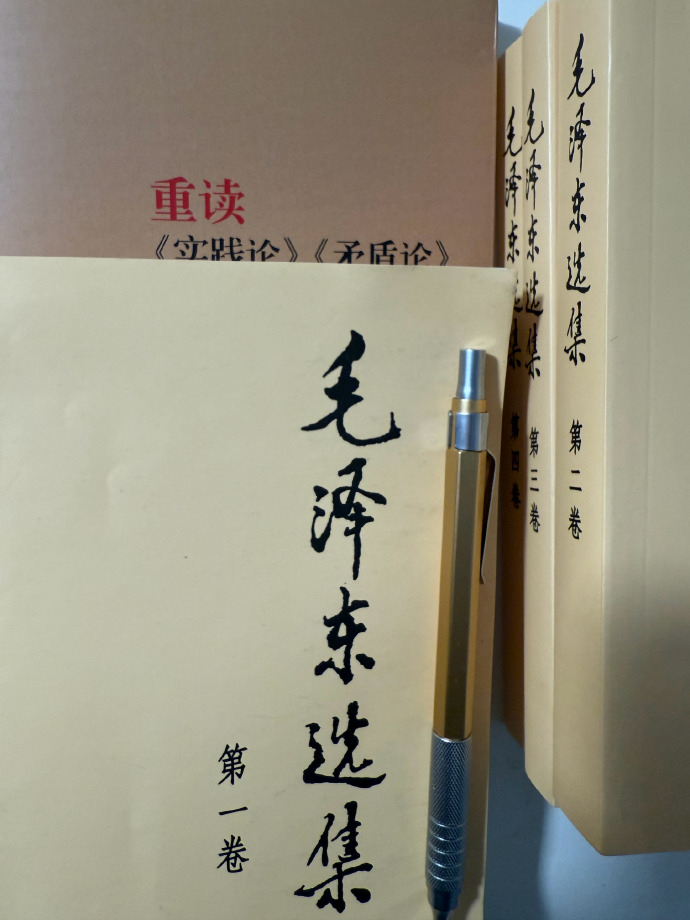 重读
《实践论》《矛盾论》
毛泽东选集
第一卷
毛泽东选集 第二卷
毛泽东选集 第三卷
毛泽东选集 第四卷